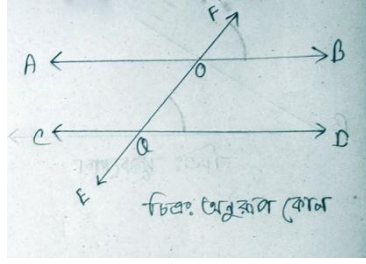 F
A B
O
C Q D
E
চিত্রঃ অনুরূপ কোন